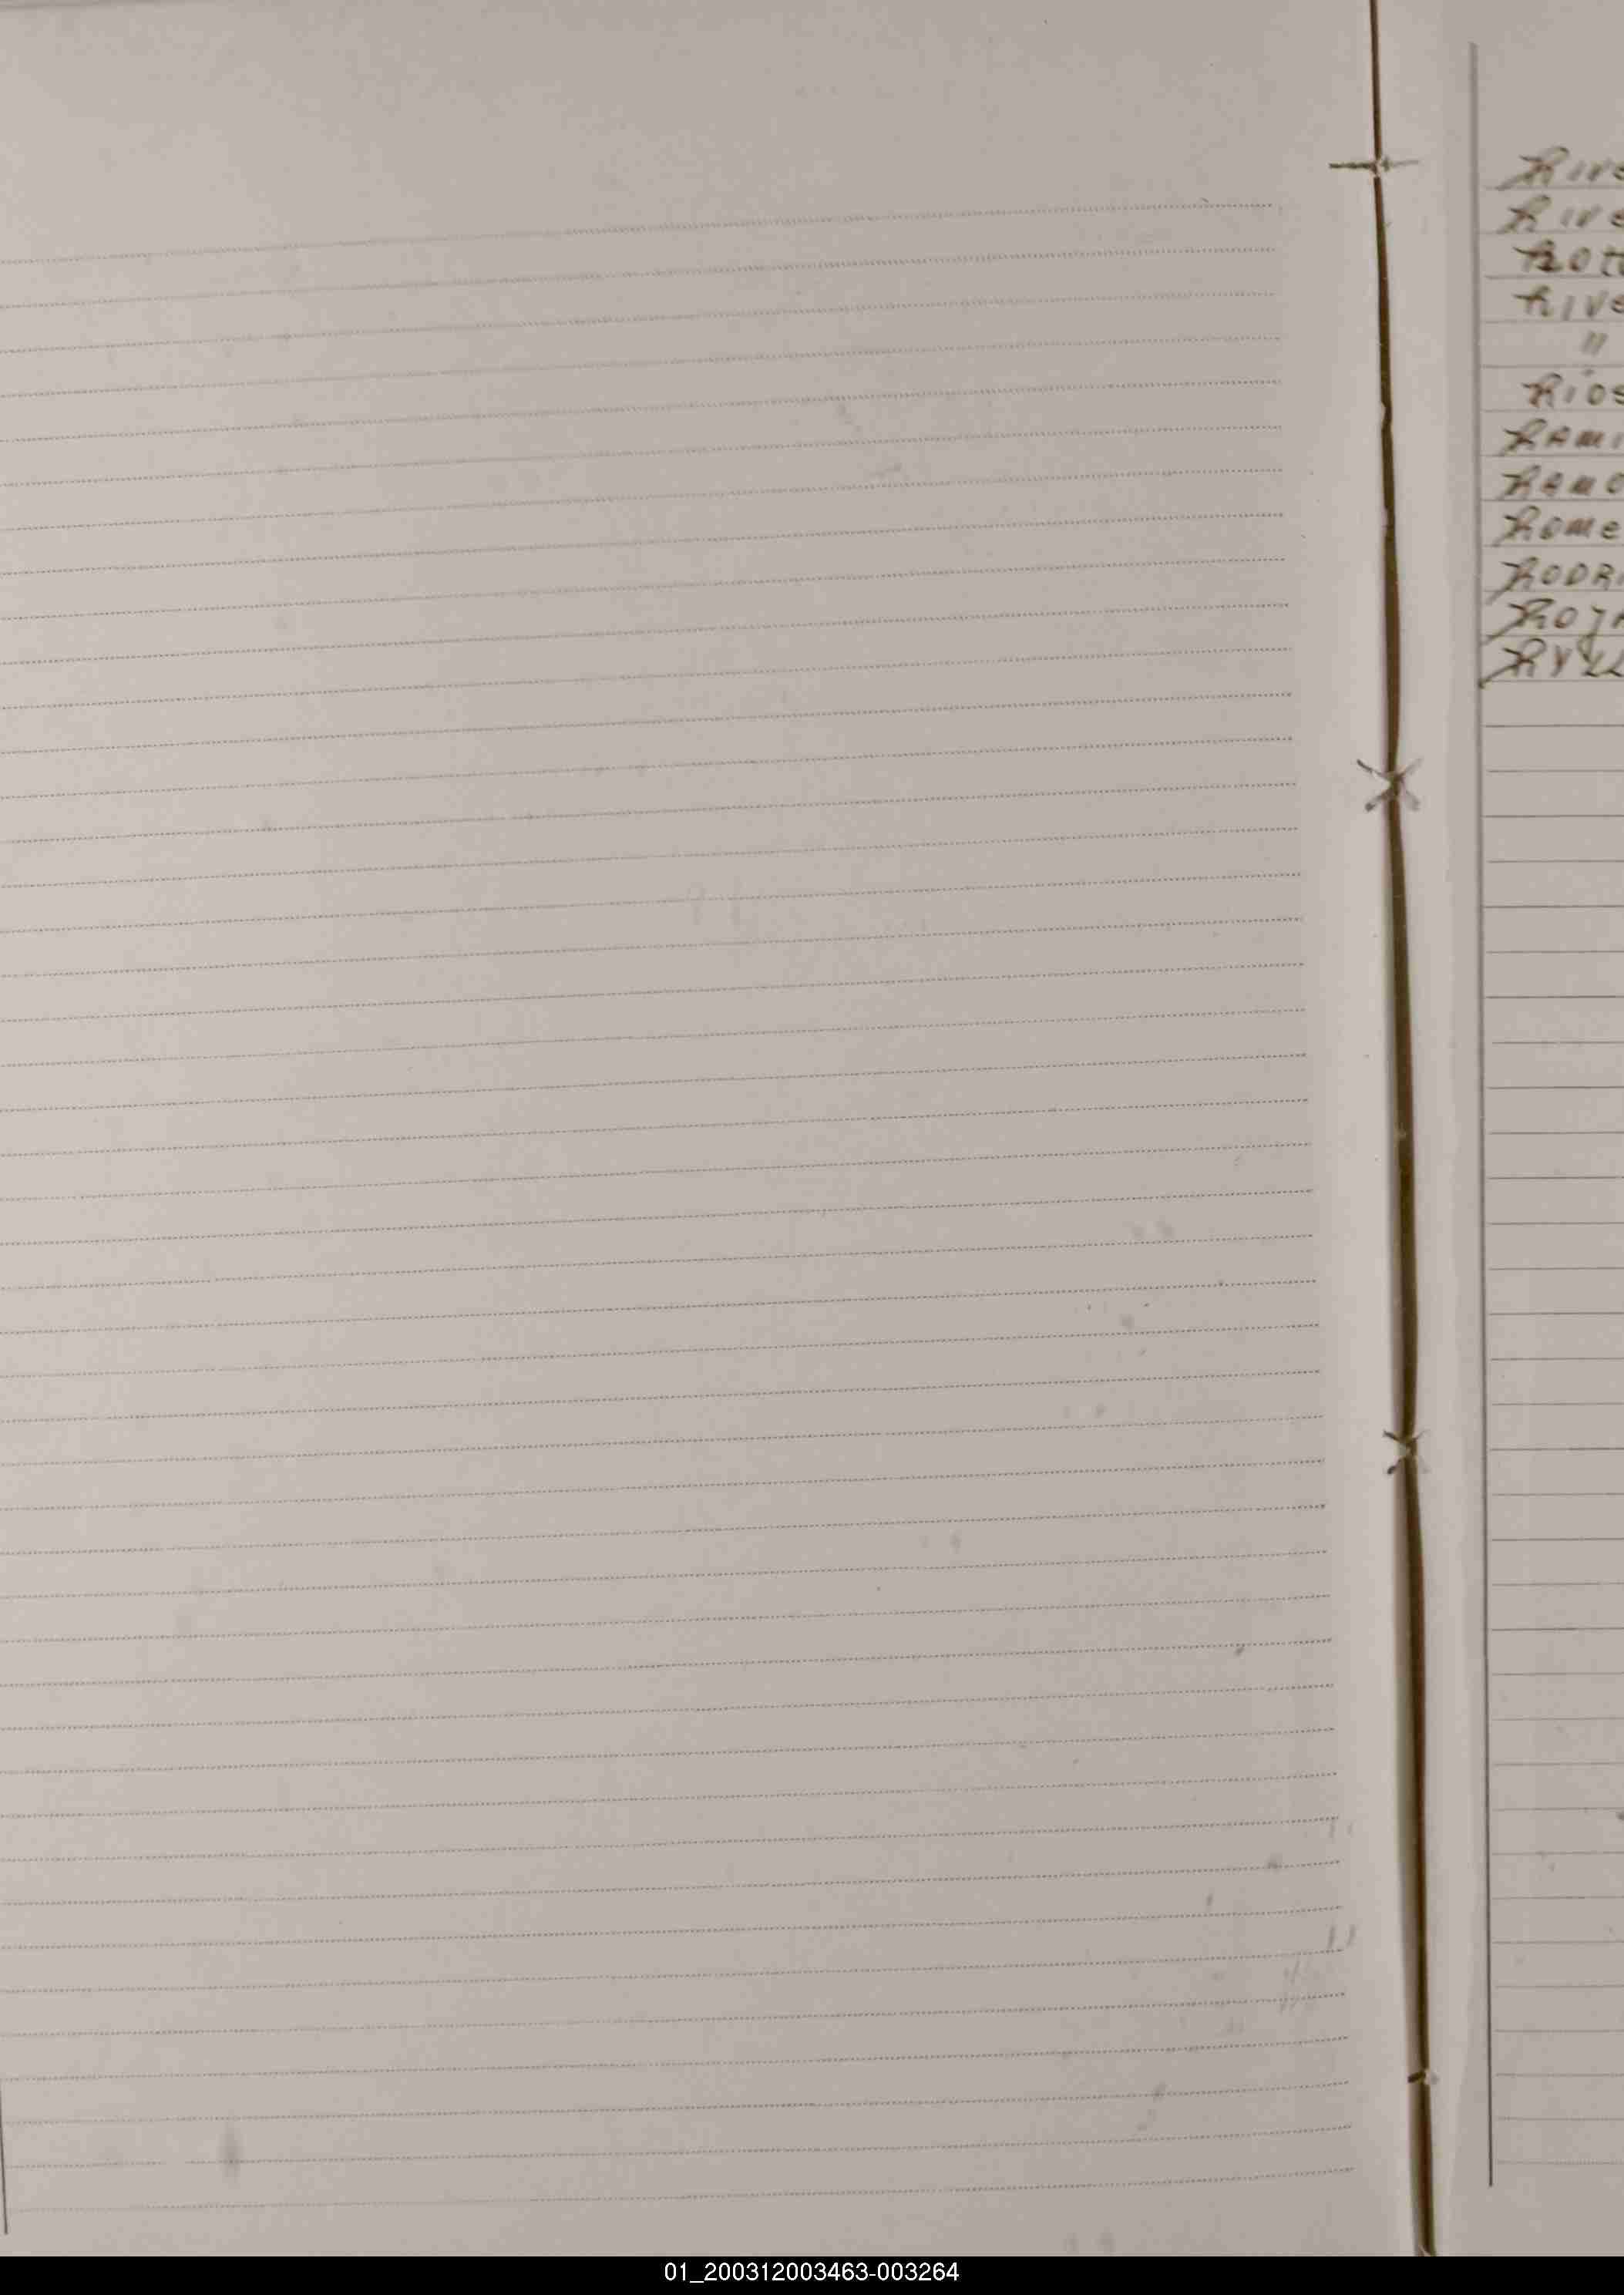 RIVE
RIVE
ROT
RIVE
"
RIOS
RAMI
RAMO
ROME
RODRI
ROJA
01_200312003463-003264